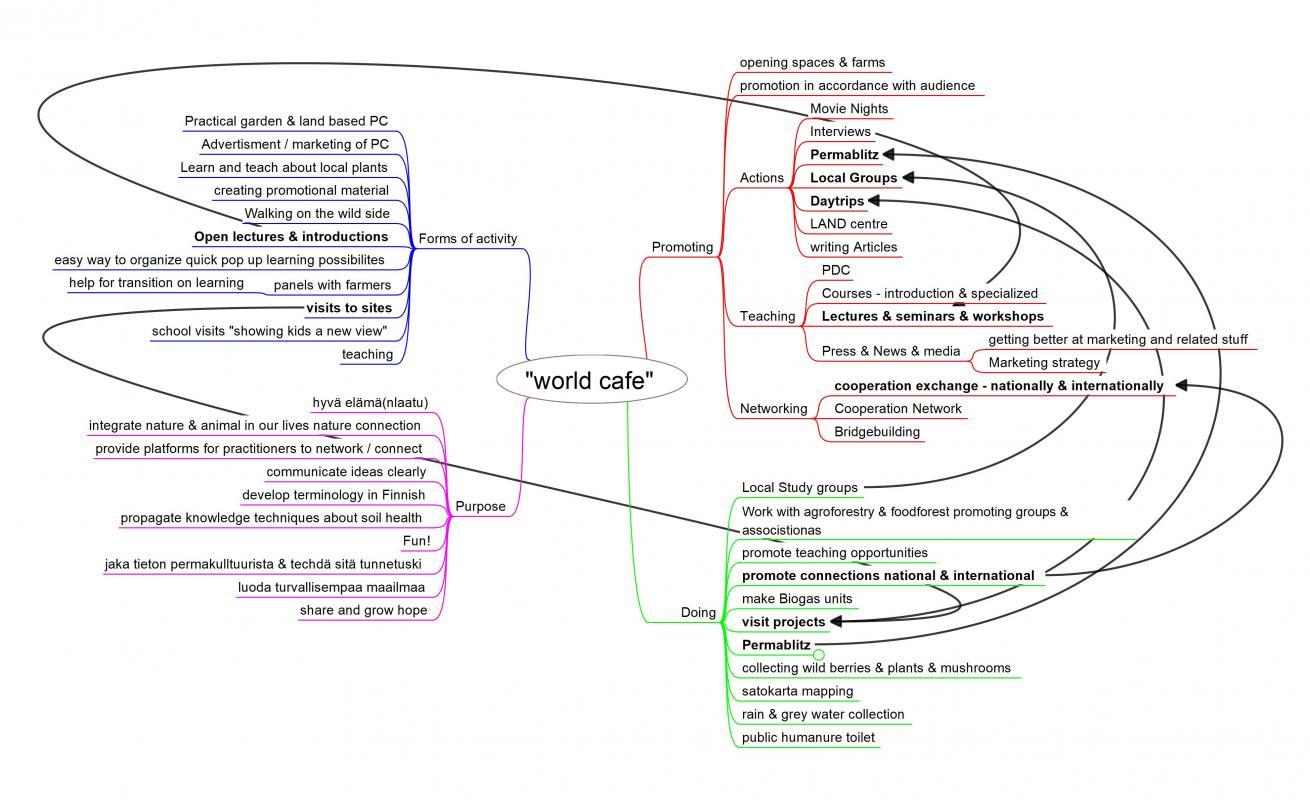 "world cafe"
Forms of activity
Practical garden & land based PC
Advertisment / marketing of PC
Learn and teach about local plants
creating promotional material
Walking on the wild side
Open lectures & introductions
easy way to organize quick pop up learning possibilites
panels with farmers
help for transition on learning
visits to sites
school visits "showing kids a new view"
teaching
Purpose
hyvä elämä(nlaatu)
integrate nature & animal in our lives nature connection
provide platforms for practitioners to network / connect
communicate ideas clearly
develop terminology in Finnish
propagate knowledge techniques about soil health
Fun!
jaka tieton permakulltuurista & techdä sitä tunnetuski
luoda turvallisempaa maailmaa
share and grow hope
Promoting
opening spaces & farms
promotion in accordance with audience
Actions
Movie Nights
Interviews
Permablitz
Local Groups
Daytrips
LAND centre
writing Articles
Teaching
PDC
Courses - introduction & specialized
Lectures & seminars & workshops
Press & News & media
getting better at marketing and related stuff
Marketing strategy
Networking
cooperation exchange - nationally & internationally
Cooperation Network
Bridgebuilding
Doing
Local Study groups
Work with agroforestry & foodforest promoting groups &
associstionas
promote teaching opportunities
promote connections national & international
make Biogas units
visit projects
Permablitz
collecting wild berries & plants & mushrooms
satokarta mapping
rain & grey water collection
public humanure toilet